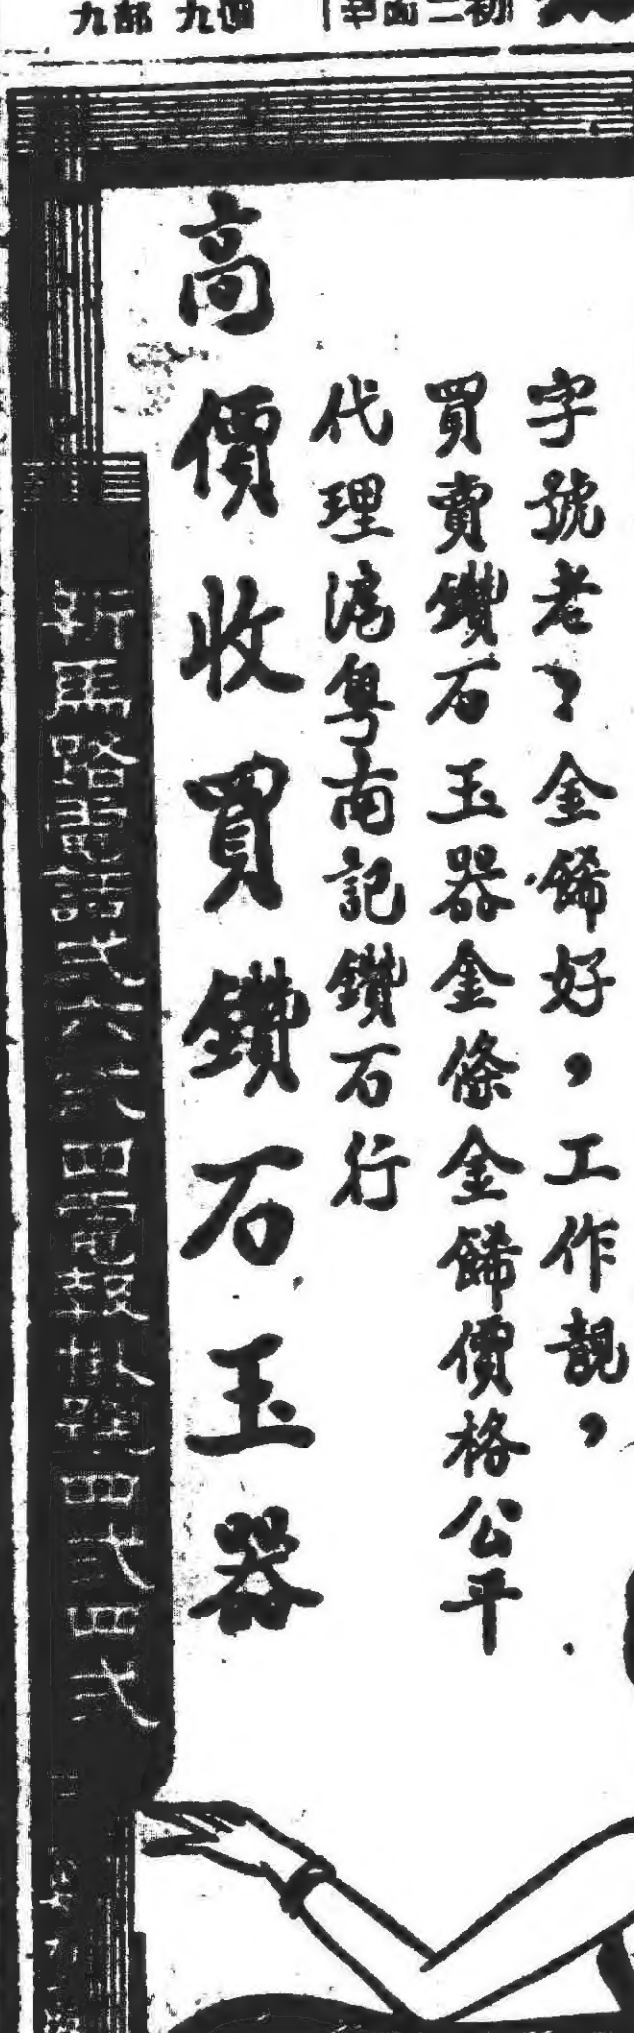 字號老々金飾好，工作靚，
買賣鑽石玉器金條金飾價格公平
代理滬粵南記鑽石行
高價收買鑽石玉器
新馬路電話弍六弍四電報掛號四弍四弍